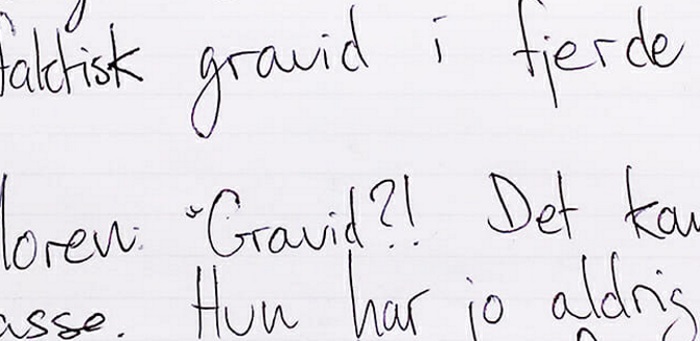 faktisk gravid i fjerde
loren. "Gravid?! Det kan
asse. Hun har jo aldrig